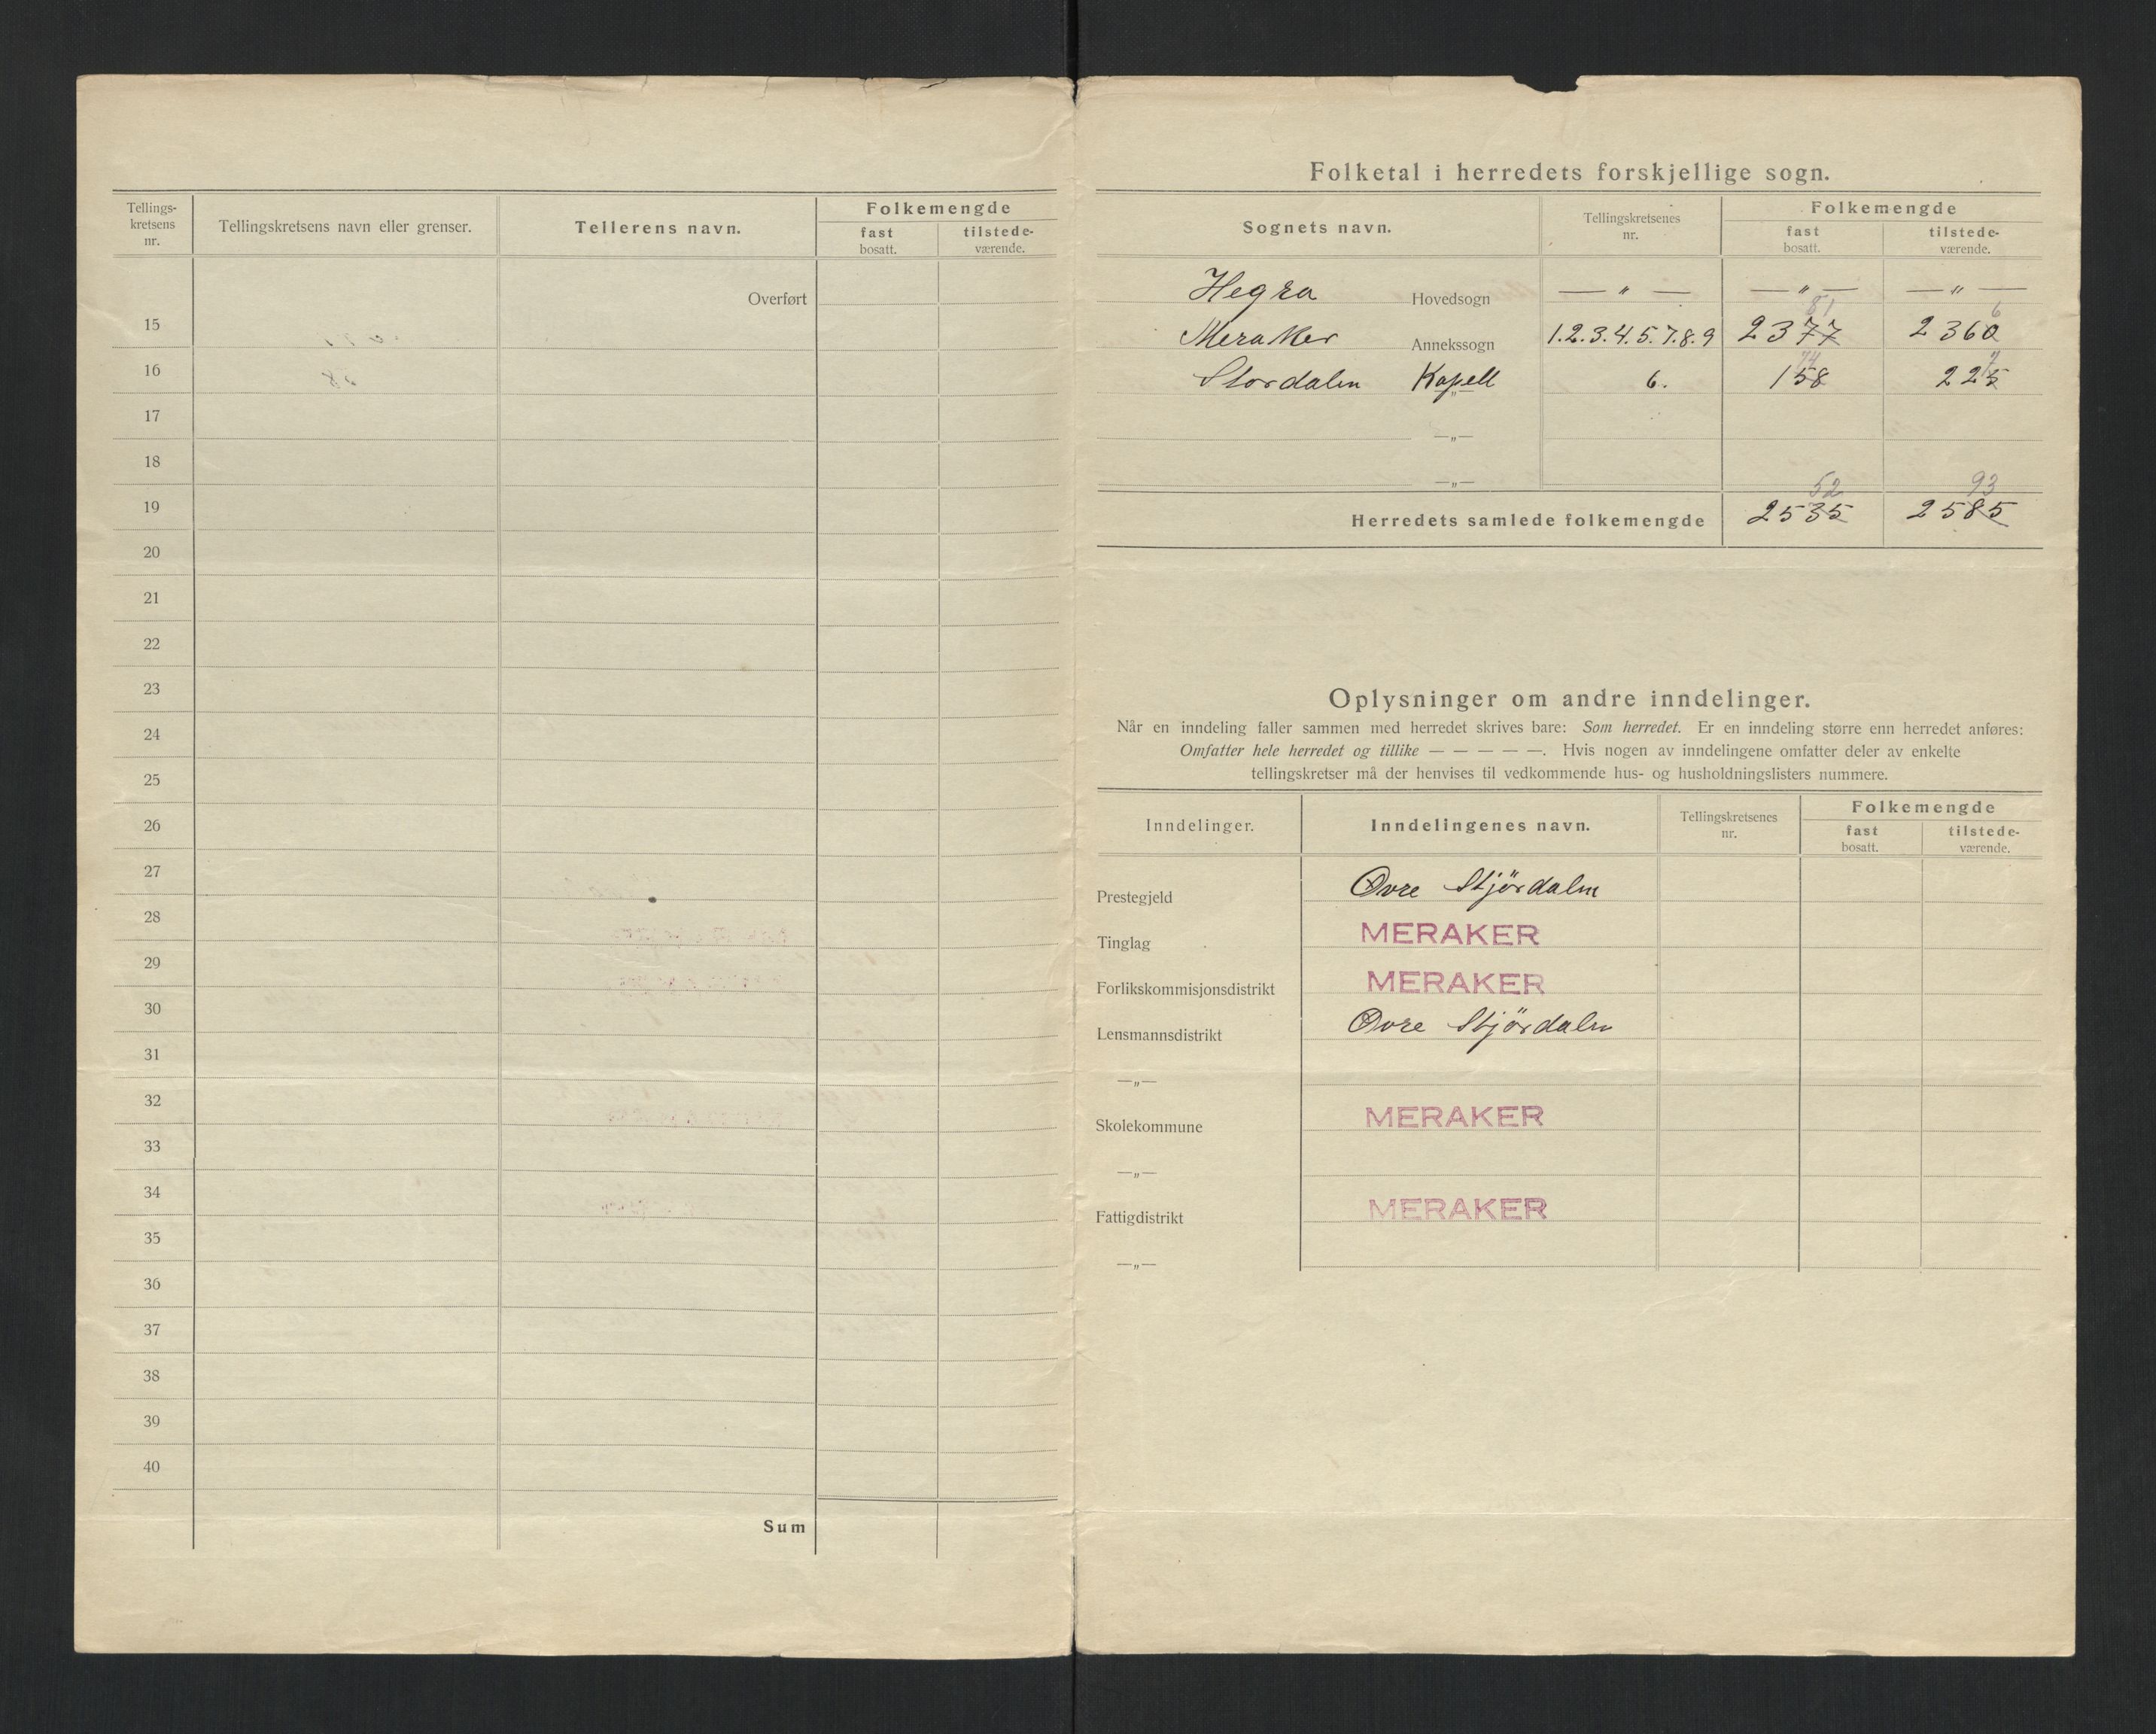 Tellings-
kretsens
nr.
Tellingskretsens navn eller grenser.
Tellerens navn.
Folkemengde
fast
bosatt.
tilstede-
værende.
Overført
15
16
17
18
19
20
21
22
23
24
25
26
27
28
29
30
31
32
33
34
35
36
37
38
39
40
Sum
Folketal i herredets forskjellige sogn.
Sognets navn.
Tellingskretsenes
nr.
Folkemengde
fast
bosatt.
tilstede-
værende.
Hegra Hovedsogn — „ — — „ — — „ —
81 6
Meraker Annekssogn 1.2.3.4.5.7.8.9 2377 2360
Stordalen Kapell 6. 158 225
—„—
—„—
52 93
Herredets samlede folkemengde 2535 2585
Oplysninger om andre inndelinger.
Når en inndeling faller sammen med herredet skrives bare: Som herredet. Er en inndeling større enn herredet anføres:
Omfatter hele herredet og tillike — — — — —. Hvis nogen av inndelingene omfatter deler av enkelte
tellingskretser må der henvises til vedkommende hus- og husholdningslisters nummere.
Inndelinger.
Inndelingenes navn.
Tellingskretsenes
nr.
Folkemengde
fast
bosatt.
tilstede-
værende.
Prestegjeld Øvre Stjördalen
Tinglag MERAKER
Forlikskommisjonsdistrikt MERAKER
Lensmannsdistrikt Øvre Stjördalen
—„—
Skolekommune MERAKER
—„—
Fattigdistrikt MERAKER
—„—